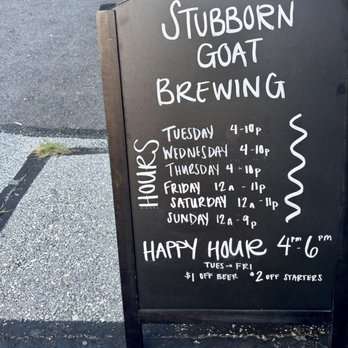 STUBBORN
GOAT
BREWING
HOURS
TUESDAY 4-10p
WEDNESDAY 4-10p
THURSDAY 4-10p
FRIDAY 12a - 11p
SATURDAY 12a - 11p
SUNDAY 12a - 9p
HAPPY HOUR 4pm-6pm
TUES → FRI
$1 OFF BEER $2 OFF STARTERS